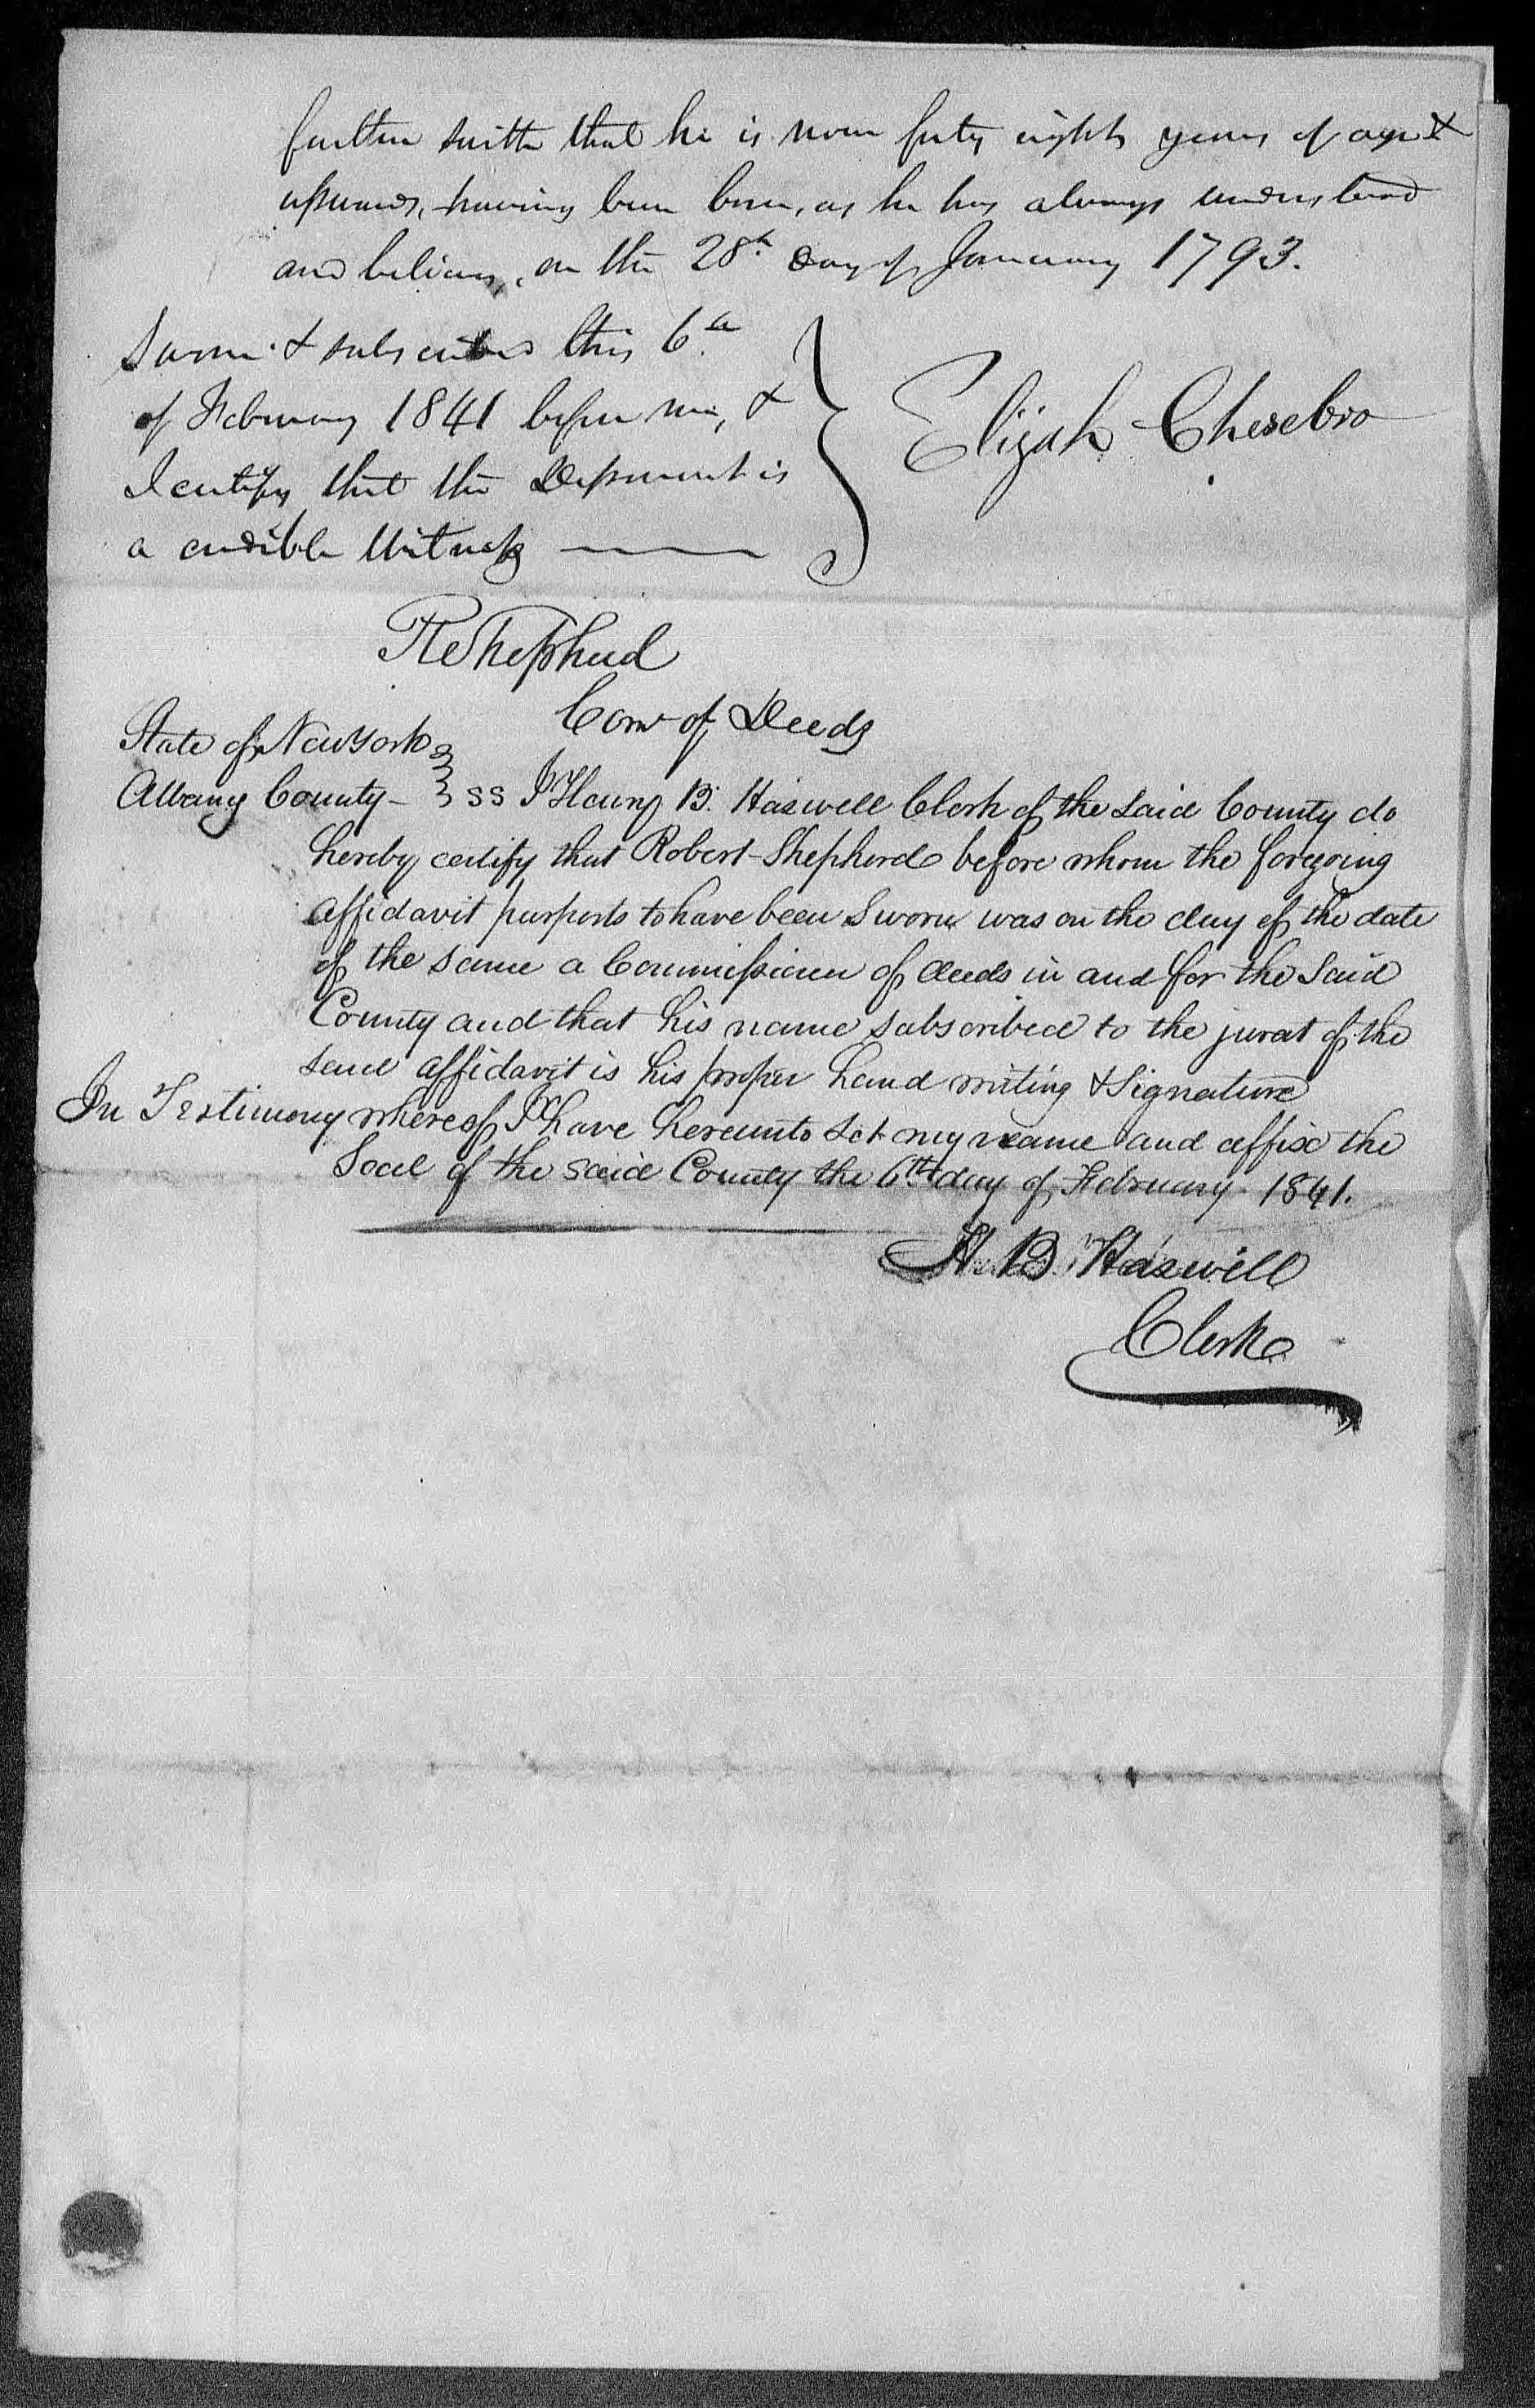 further saith that he is now forty eight years of age &
upwards, having been born, as he has always understood
and believes, on the 28th day of January 1793.
Sworn & subscribed this 6th
of February 1841 before me, &
I certify that the Deponent is
a credible Witness
Elijah Chesebro
R Shepherd
Com of Deeds
State of New York
Albany County - } ss I Henry B. Haswell Clerk of the said County do
hereby certify that Robert Shepherd before whom the foregoing
affidavit purports to have been Sworn was on the day of the date
of the same a Commissioner of deeds in and for the Said
County and that his name subscribed to the jurat of the
said affidavit is his proper hand writing & Signature
In Testimony whereof I have hereunto set my name and affix the
Seal of the said County the 6th day of February 1841.
H. B. Haswell
Clerk